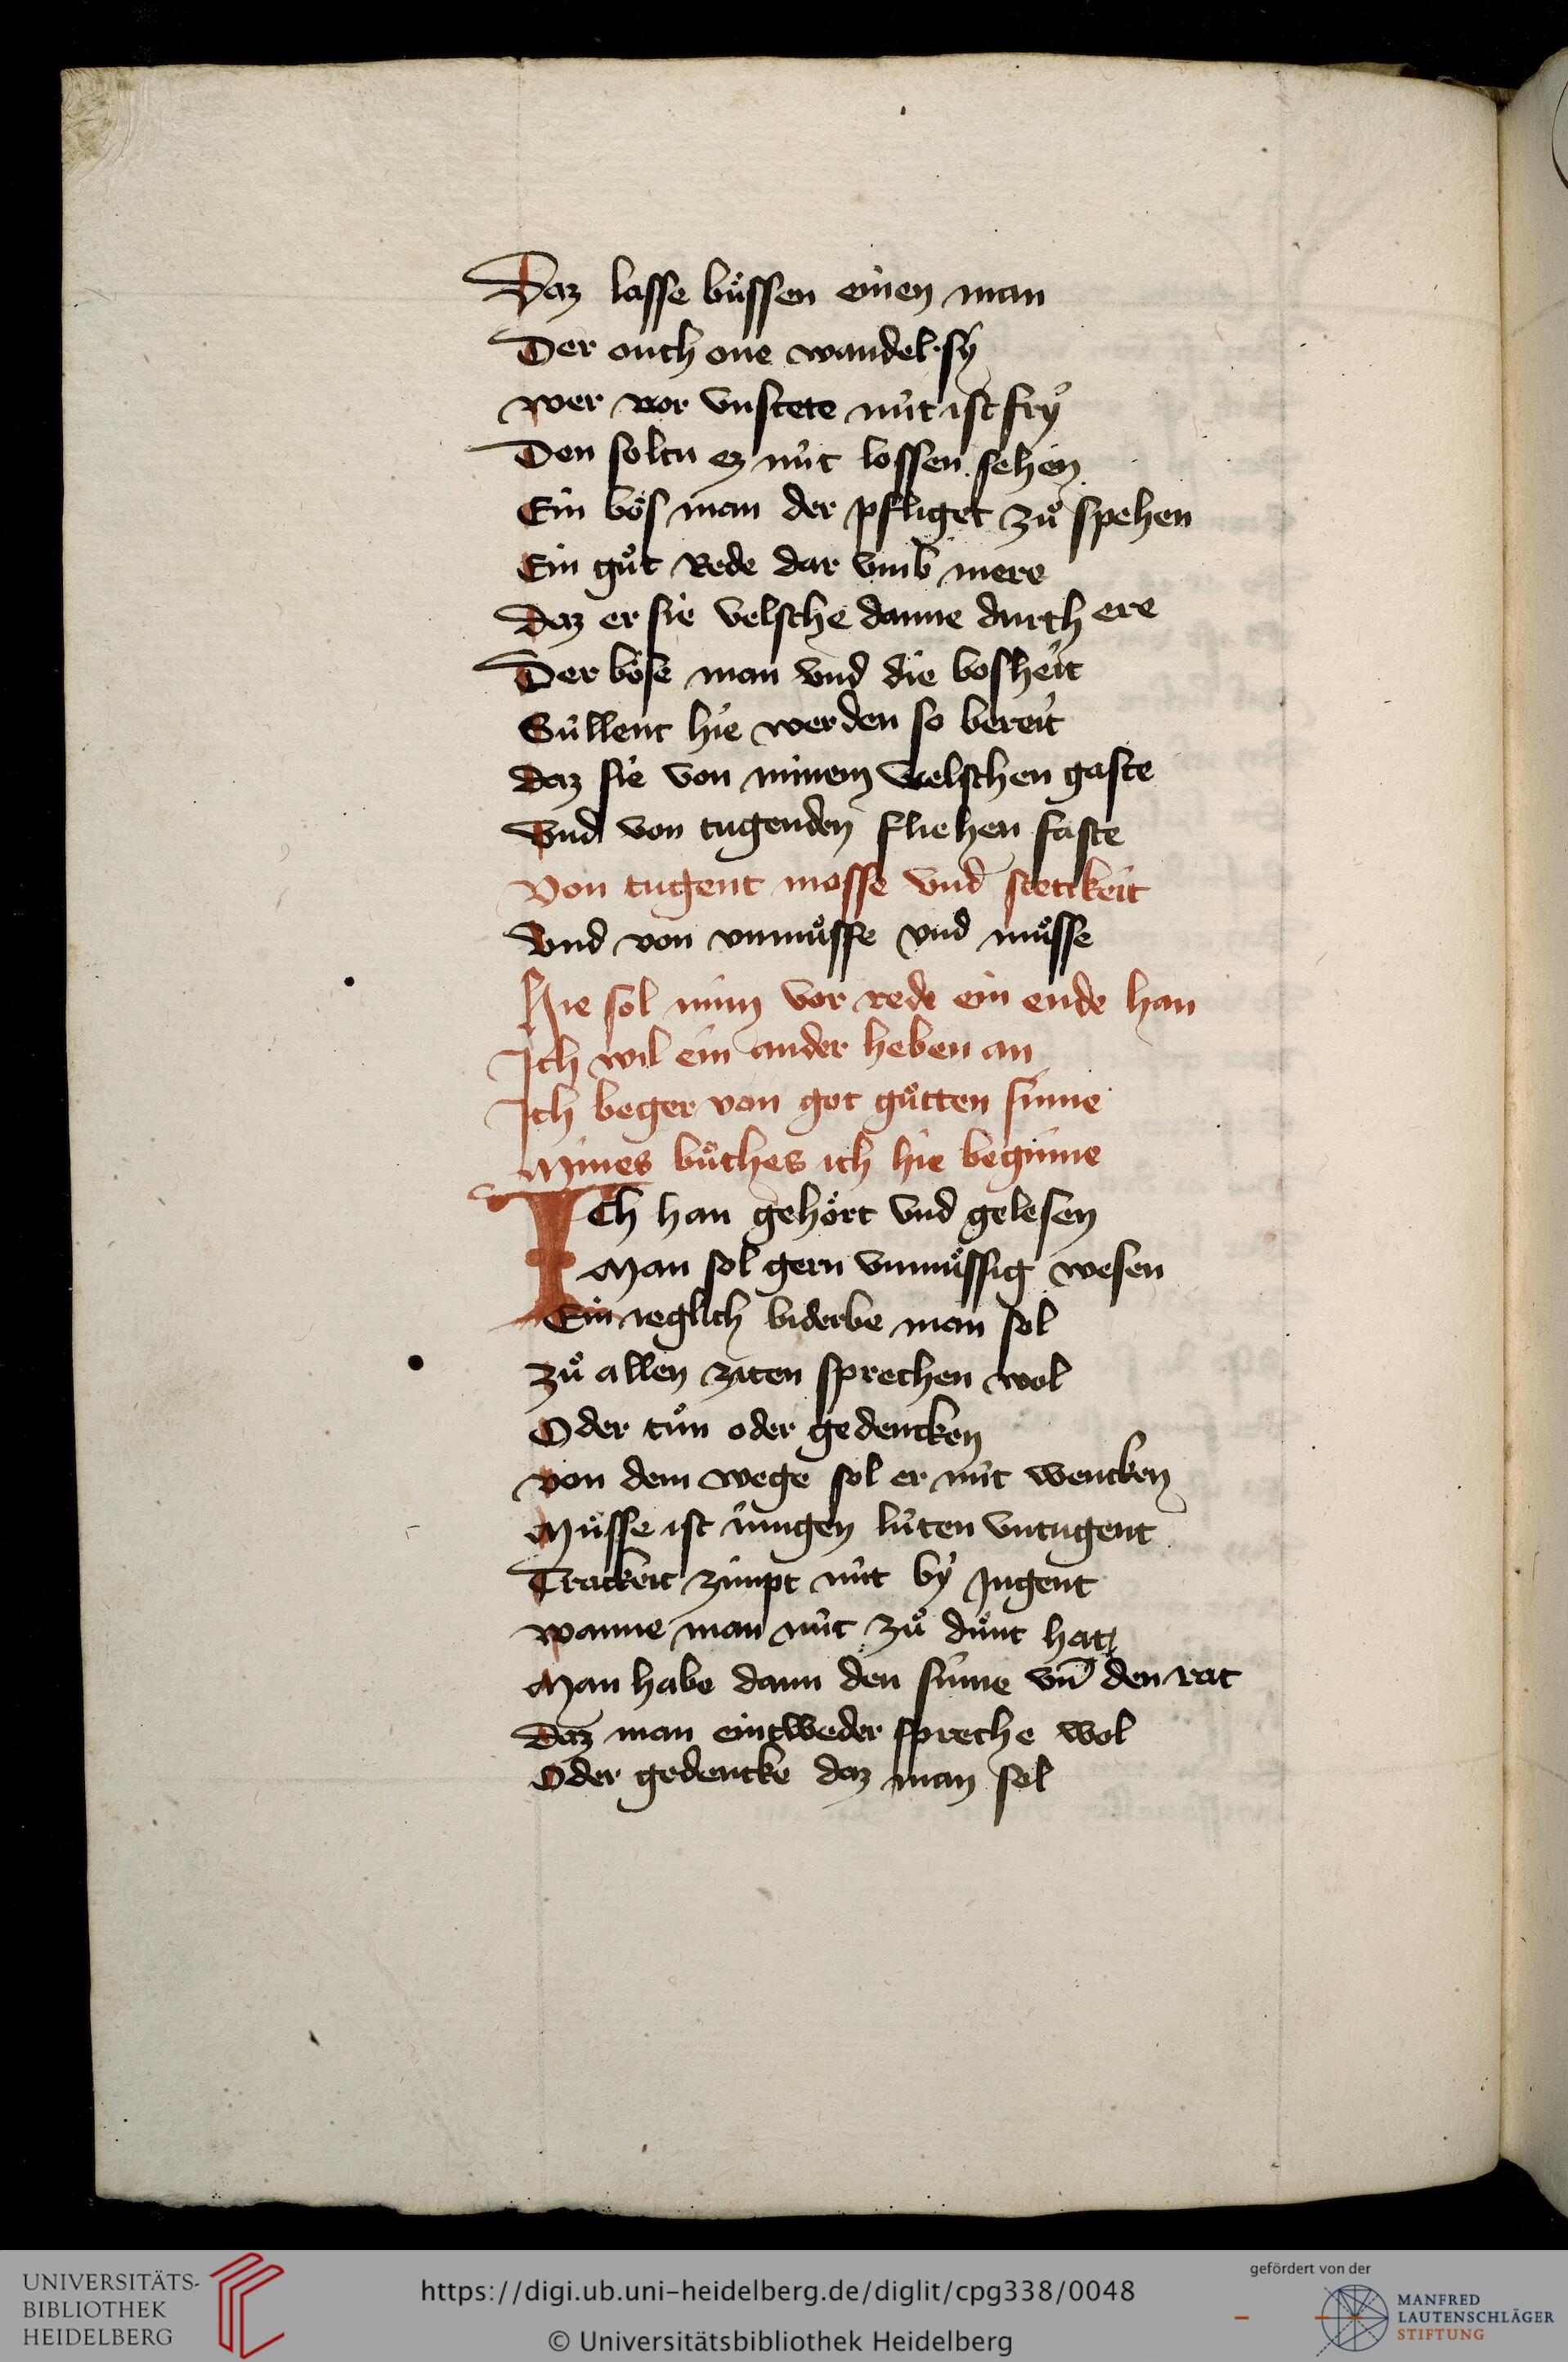 Daz lasse bůssen einen man
Der ouch one wandel sy
wer vor vnstete nút ist fry
Den soltu ez nút lossen sehen
Ein bös man der pfliget zů spehen
Ein gůt Rede dar vmb mere
Daz er sie velsche danne durch ere
Der böse man vnd die bosheit
Súllent hie werden so bereit
Daz sie von minem welschen gaste
Vnd von tugenden fliehen faste
Von tugent mosse vnd stetikeit
Vnd von vnmůsse vnd můsse
Hie sol min vor rede ein ende han
Ich wil ein ander heben an
Ich beger von got gůtten sinne
Mines bůches ich hie beginne
Ich han gehört vnd gelesen
Man sol gern vnmůssig wesen
Ein ieglich biderbe man sol
Zů allen ziten sprechen wol
Oder tůn oder gedencken
von dem wege sol er nút wencken
Můsse ist iungen lúten vntugent
Trackeit zimpt nút by Jugent
wanne man nút zů důnt hat
Man habe dann den sinne vn̄ den rat
Daz man eintweder spreche wol
Oder gedencke daz man sol
UNIVERSITÄTS-
BIBLIOTHEK
HEIDELBERG
https://digi.ub.uni-heidelberg.de/diglit/cpg338/0048
© Universitätsbibliothek Heidelberg
gefördert von der
MANFRED
LAUTENSCHLÄGER
STIFTUNG